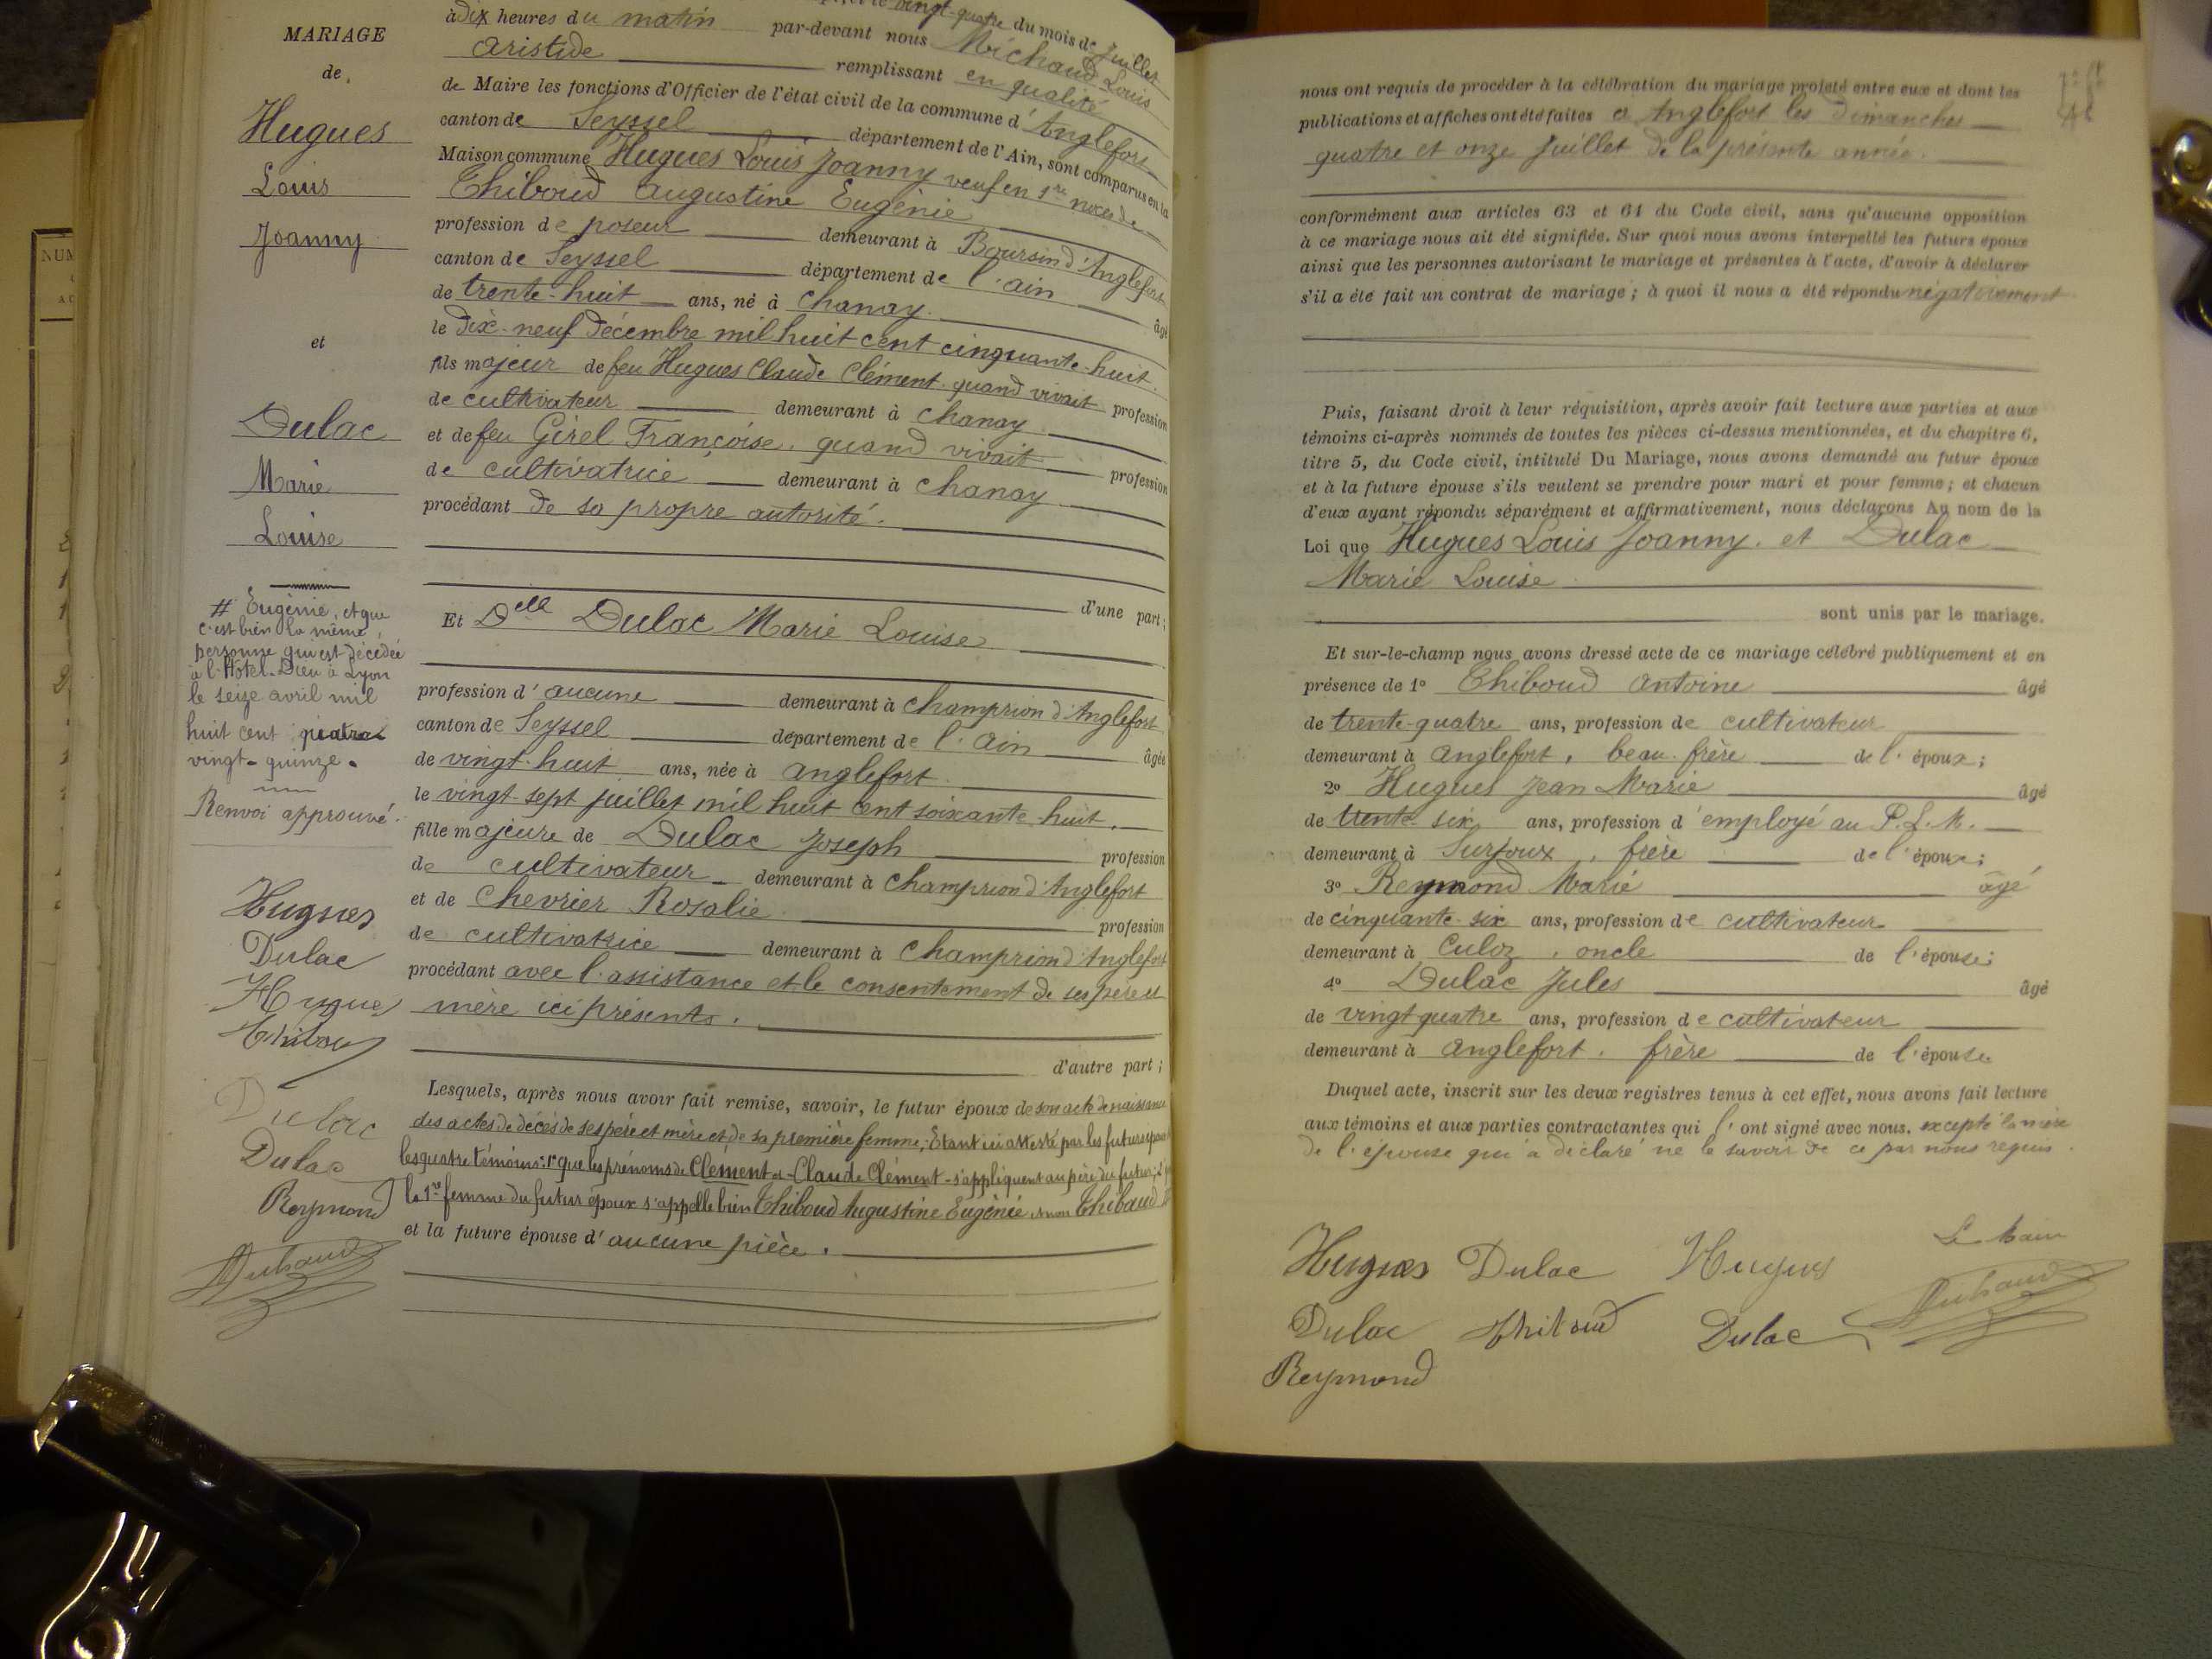 MARIAGE
de
Hugues
Louis
Joanny
et
Dulac
Marie
Louise
# Eugénie, et que
c'est bien la même
personne qui est décédée
à l'Hôtel-Dieu à Lyon
le seize avril mil
huit cent quatre
vingt-quinze.
Renvoi approuvé.
Hugues
Dulac
Hugues
Thiboud
Dulac
Dulac
Reymond
vingt-quatre du mois de Juillet
à dix heures du matin par-devant nous Michaud Louis
Aristide remplissant en qualité
de Maire les fonctions d'Officier de l'état civil de la commune d'Anglefort
canton de Seyssel département de l'Ain, sont comparus en la
Maison commune Hugues Louis Joanny veuf en 1re noces de
Thiboud Augustine Eugénie
profession de poseur demeurant à Boursin d'Anglefort
canton de Seyssel département de l'Ain âgé
de trente-huit ans, né à Chanay
le dix-neuf Décembre mil huit cent cinquante-huit
fils majeur de feu Hugues Claude Clément quand vivait profession
de cultivateur demeurant à Chanay
et de feu Girel Françoise, quand vivait profession
de cultivatrice demeurant à Chanay
procédant de sa propre autorité.
d'une part;
Et Delle Dulac Marie Louise
profession d'aucune demeurant à Champrion d'Anglefort
canton de Seyssel département de l'Ain âgée
de vingt-huit ans, née à Anglefort
le vingt-sept juillet mil huit cent soixante huit,
fille majeure de Dulac Joseph profession
de cultivateur demeurant à Champrion d'Anglefort
et de Chevrier Rosalie profession
de cultivatrice demeurant à Champrion d'Anglefort
procédant avec l'assistance et le consentement de ses père et
mère ici présents.
d'autre part;
Lesquels, après nous avoir fait remise, savoir, le futur époux de son acte de naissance
des actes de décès de ses père et mère et de sa première femme; Etant ici attesté par les futurs époux
les quatre témoins: 1° que les prénoms de Clément et Claude Clément s'appliquent au père du futur;
la 1re femme du futur époux s'appelle bien Thiboud Augustine Eugénie et non Thibaud
et la future épouse d'aucune pièce.
nous ont requis de procéder à la célébration du mariage projeté entre eux et dont les
publications et affiches ont été faites à Anglefort les dimanches
quatre et onze Juillet de la présente année.
conformément aux articles 63 et 64 du Code civil, sans qu'aucune opposition
à ce mariage nous ait été signifiée. Sur quoi nous avons interpellé les futurs époux
ainsi que les personnes autorisant le mariage et présentes à l'acte, d'avoir à déclarer
s'il a été fait un contrat de mariage; à quoi il nous a été répondu négativement
Puis, faisant droit à leur réquisition, après avoir fait lecture aux parties et aux
témoins ci-après nommés de toutes les pièces ci-dessus mentionnées, et du chapitre 6,
titre 5, du Code civil, intitulé Du Mariage, nous avons demandé au futur époux
et à la future épouse s'ils veulent se prendre pour mari et pour femme; et chacun
d'eux ayant répondu séparément et affirmativement, nous déclarons Au nom de la
Loi que Hugues Louis Joanny et Dulac
Marie Louise
sont unis par le mariage.
Et sur-le-champ nous avons dressé acte de ce mariage célébré publiquement et en
présence de 1° Thiboud Antoine âgé
de trente-quatre ans, profession de cultivateur
demeurant à Anglefort, beau-frère de l'époux;
2° Hugues Jean Marie âgé
de trente-six ans, profession d'employé au P.L.M.
demeurant à Surjoux, frère de l'époux;
3° Reymond Marie âgé
de cinquante-six ans, profession de cultivateur
demeurant à Culoz, oncle de l'épouse;
4° Dulac Jules âgé
de vingt quatre ans, profession de cultivateur
demeurant à Anglefort, frère de l'épouse.
Duquel acte, inscrit sur les deux registres tenus à cet effet, nous avons fait lecture
aux témoins et aux parties contractantes qui l'ont signé avec nous, excepté la mère
de l'épouse qui a déclaré ne le savoir de ce par nous requis.
Le Maire
Hugues Dulac Hugues
Dulac Thiboud Dulac
Reymond